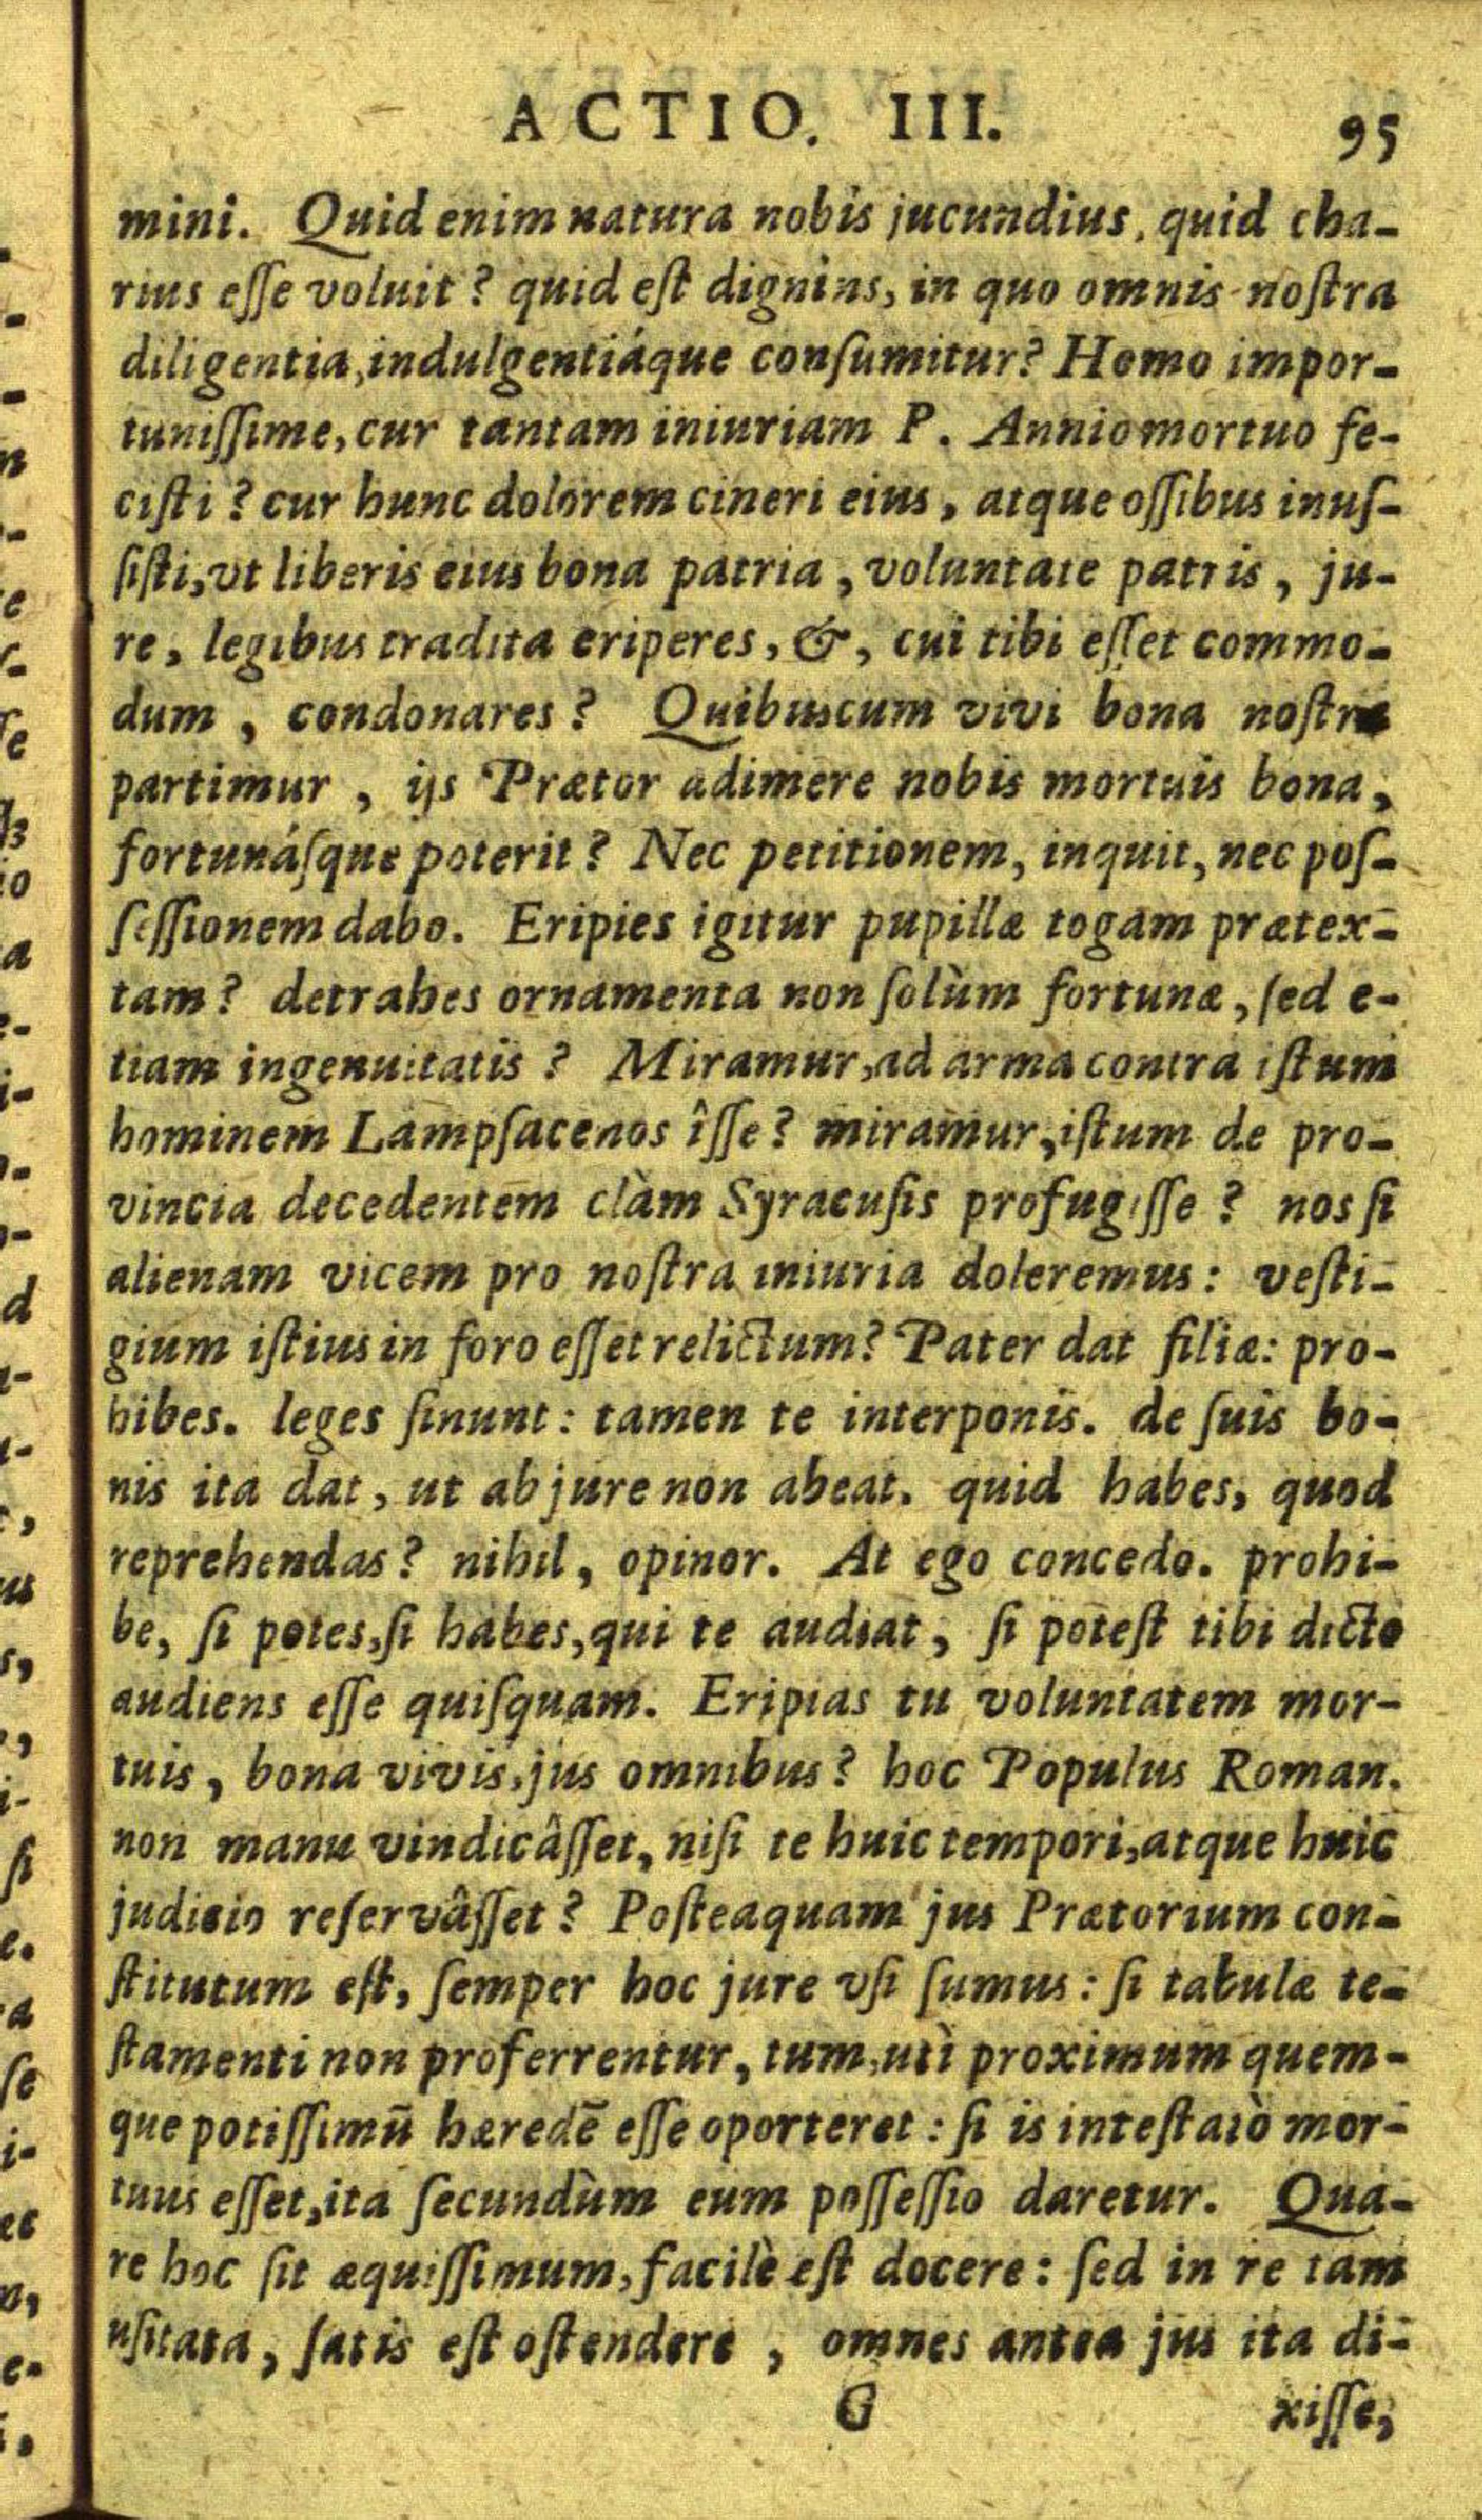 ACTIO. III. 95
mini. Quid enim natura nobis jucundius, quid cha-
rius eſſe voluit? quid eſt dignius, in quo omnis noſtra
diligentia, indulgentiáque conſumitur? Homo impor-
tuniſſime, cur tantam iniuriam P. Annio mortuo fe-
ciſti? cur hunc dolorem cineri eius, atque oſſibus inuſ-
ſiſti, vt liberis eius bona patria, voluntate patris, ju-
re, legibus tradita eriperes, &, cui tibi eſſet commo-
dum, condonares? Quibuscum vivi bona noſtra
partimur, ijs Prætor adimere nobis mortuis bona,
fortunáſque poterit? Nec petitionem, inquit, nec poſ-
ſeſſionem dabo. Eripies igitur pupillæ togam prætex-
tam? detrahes ornamenta non ſolùm fortunæ, ſed e-
tiam ingenuitatis? Miramur, ad arma contra iſtum
hominem Lampſacenos îſſe? miramur, iſtum de pro-
vincia decedentem clàm Syracuſis profugiſſe? nos ſi
alienam vicem pro noſtra iniuria doleremus: veſti-
gium iſtius in foro eſſet relictum? Pater dat filiæ: pro-
hibes. leges ſinunt: tamen te interponis. de ſuis bo-
nis ita dat, ut ab jure non abeat. quid habes, quod
reprehendas? nihil, opinor. At ego concedo. prohi-
be, ſi potes, ſi habes, qui te audiat, ſi poteſt tibi dicto
audiens eſſe quiſquam. Eripias tu voluntatem mor-
tuis, bona vivis, jus omnibus? hoc Populus Roman.
non manu vindicâſſet, niſi te huic tempori, atque huic
judicio reſervâſſet? Poſteaquam jus Prætorium con-
ſtitutum eſt, ſemper hoc jure vſi ſumus: ſi tabulæ te-
ſtamenti non proferrentur, tum, utì proximum quem-
que potiſſimũ hæredẽ eſſe oporteret: ſi is inteſtatò mor-
tuus eſſet, ita ſecundùm eum poſſeſſio daretur. Qua-
re hoc ſit æquiſſimum, facilè eſt docere: ſed in re tam
uſitata, ſatis eſt oſtendere, omnes antea jus ita di-
G xiſſe,